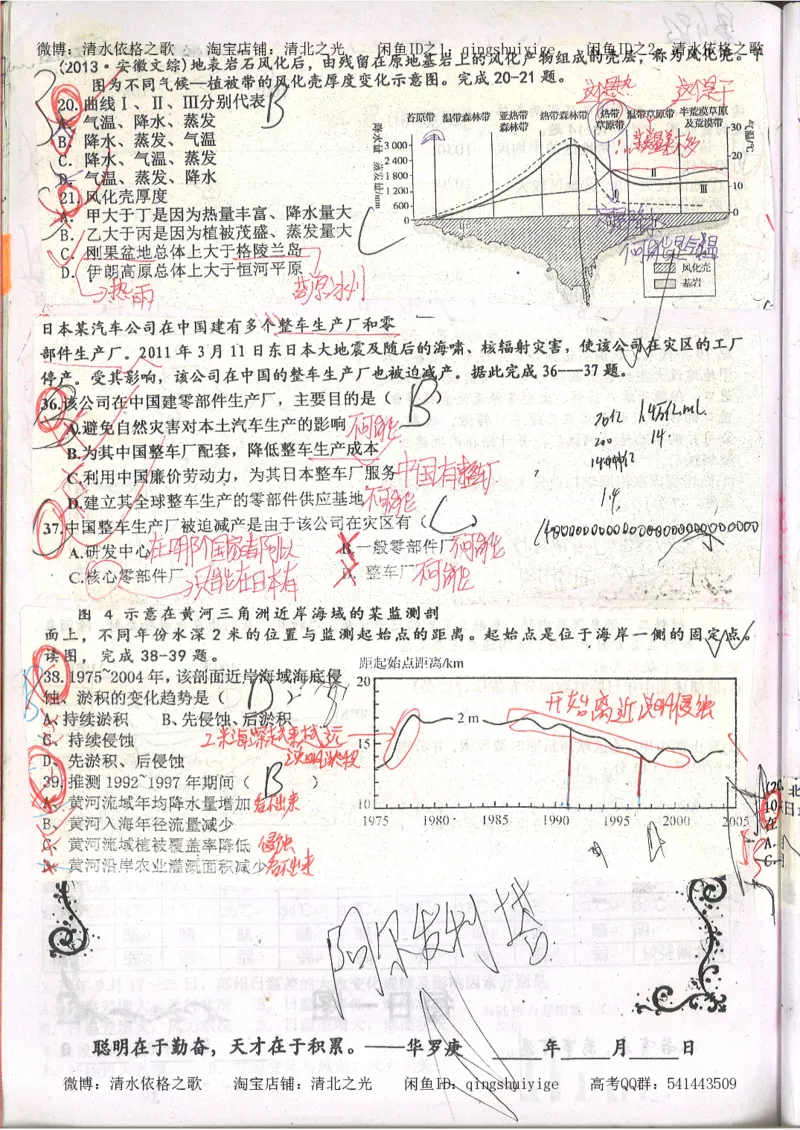 微博：清水依格之歌 淘宝店铺：清北之光 闲鱼ID之1：qingshuiyige 闲鱼ID之2：清水依格之歌
(2013·安徽文综)地表岩石风化后，由残留在原地基岩上的风化产物组成的壳层，称为风化壳。下
图为不同气候—植被带的风化壳厚度变化示意图。完成20-21题。
这个是热 这个是干
20.曲线Ⅰ、Ⅱ、Ⅲ分别代表 B
A.气温、降水、蒸发
B.降水、蒸发、气温
C.降水、气温、蒸发
D.气温、蒸发、降水
21.风化壳厚度 C
A.甲大于丁是因为热量丰富、降水量大
B.乙大于丙是因为植被茂盛、蒸发量大
C.刚果盆地总体上大于格陵兰岛
D.伊朗高原总体上大于恒河平原
热雨
高原冰川
苔原带 温带森林带 亚热带森林带 热带森林带 热带草原带 温带草原带 半荒漠草原及荒漠带
降水量 蒸发量/mm
气温/℃
3 000
2 400
1 800
1 200
600
0
30
20
10
0
Ⅱ
Ⅲ
风化壳
基岩
日本某汽车公司在中国建有多个整车生产厂和零
部件生产厂。2011年3月11日东日本大地震及随后的海啸、核辐射灾害，使该公司在灾区的工厂
停产。受其影响，该公司在中国的整车生产厂也被迫减产。据此完成36---37题。
36.该公司在中国建零部件生产厂，主要目的是（ B ）
A.避免自然灾害对本土汽车生产的影响 不可能
B.为其中国整车厂配套，降低整车生产成本
C.利用中国廉价劳动力，为其日本整车厂服务 中国有整车厂
D.建立其全球整车生产的零部件供应基地 不可能
37.中国整车生产厂被迫减产是由于该公司在灾区有（ C ）
A.研发中心 在哪个国家都可以 B.一般零部件厂 不可能
C.核心零部件厂 只能在日本有 D.整车厂 不可能
图 4 示意在黄河三角洲近岸海域的某监测剖
面上，不同年份水深2米的位置与监测起始点的距离。起始点是位于海岸一侧的固定点。
读图，完成38-39题。
38.1975~2004年,该剖面近岸海域海底侵
蚀、淤积的变化趋势是（ D ）
A、持续淤积 B、先侵蚀、后淤积
C、持续侵蚀
D、先淤积、后侵蚀
39.推测1992~1997年期间（ B ）
A、黄河流域年均降水量增加 看不出来
B、黄河入海年径流量减少
C、黄河流域植被覆盖率降低 侵蚀
D、黄河沿岸农业灌溉面积减少 看不出来
距起始点距离/km
20
15
10
2 m
1975 1980 1985 1990 1995 2000 2005
聪明在于勤奋，天才在于积累。——华罗庚 年 月 日
微博：清水依格之歌 淘宝店铺：清北之光 闲鱼ID：qingshuiyige 高考QQ群：541443509